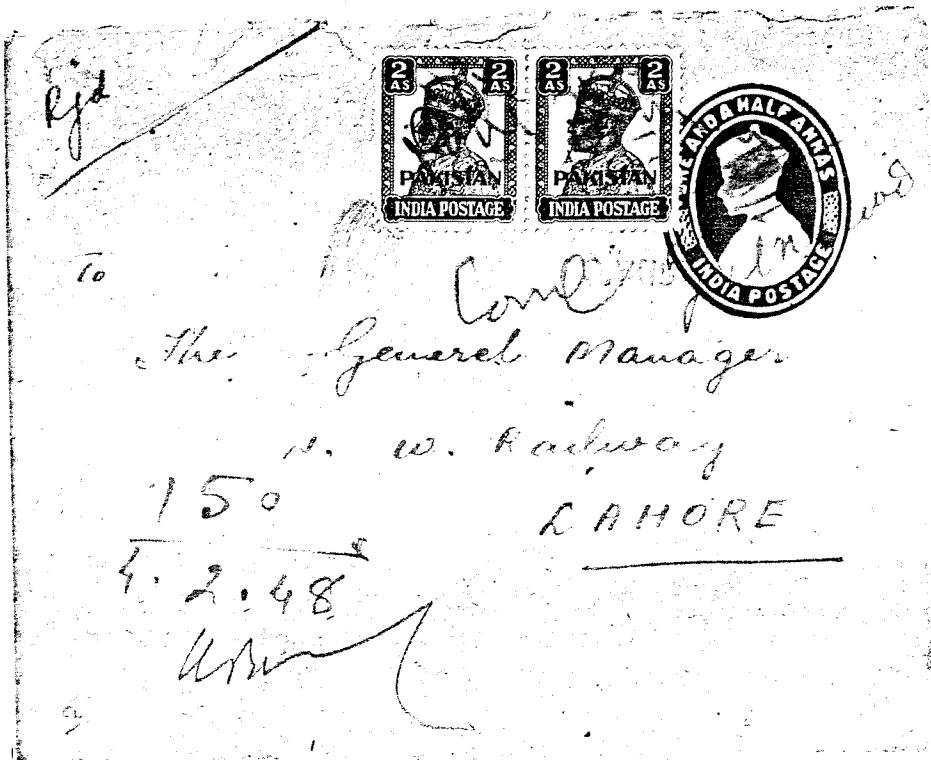 Rjd
2 AS 2 AS
PAKISTAN
INDIA POSTAGE
2 AS 2 AS
PAKISTAN
INDIA POSTAGE
AND A HALF ANNAS
INDIA POSTAGE
To
The General Manager
N. W. Railway
LAHORE
150
4.2.48